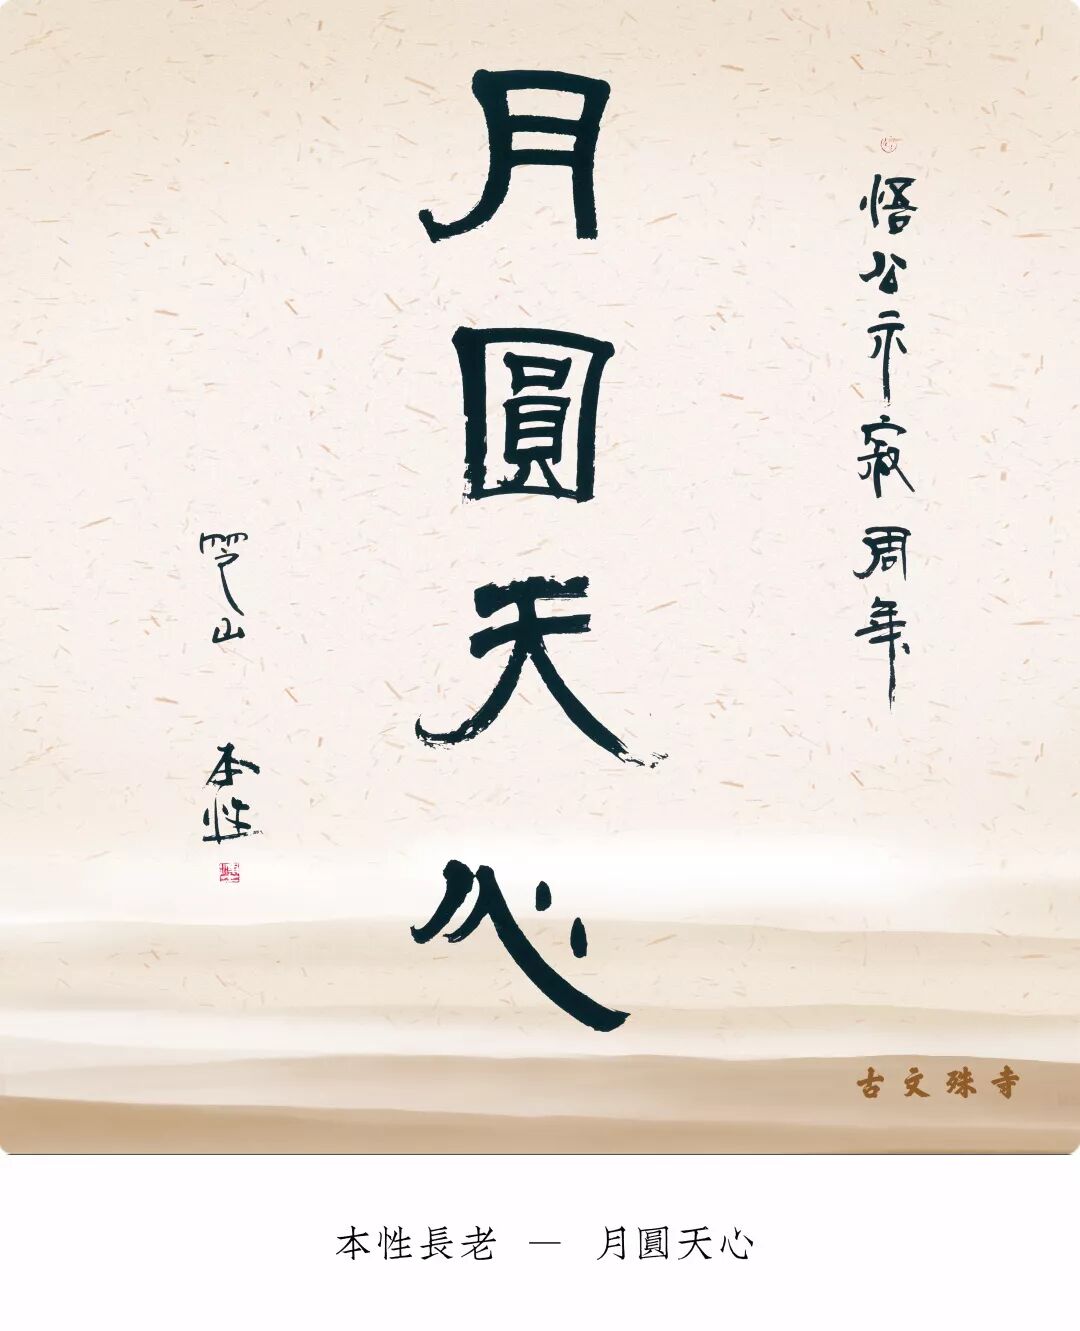 悟公示寂周年
月圓天心
本性
古文殊寺
本性長老 — 月圓天心